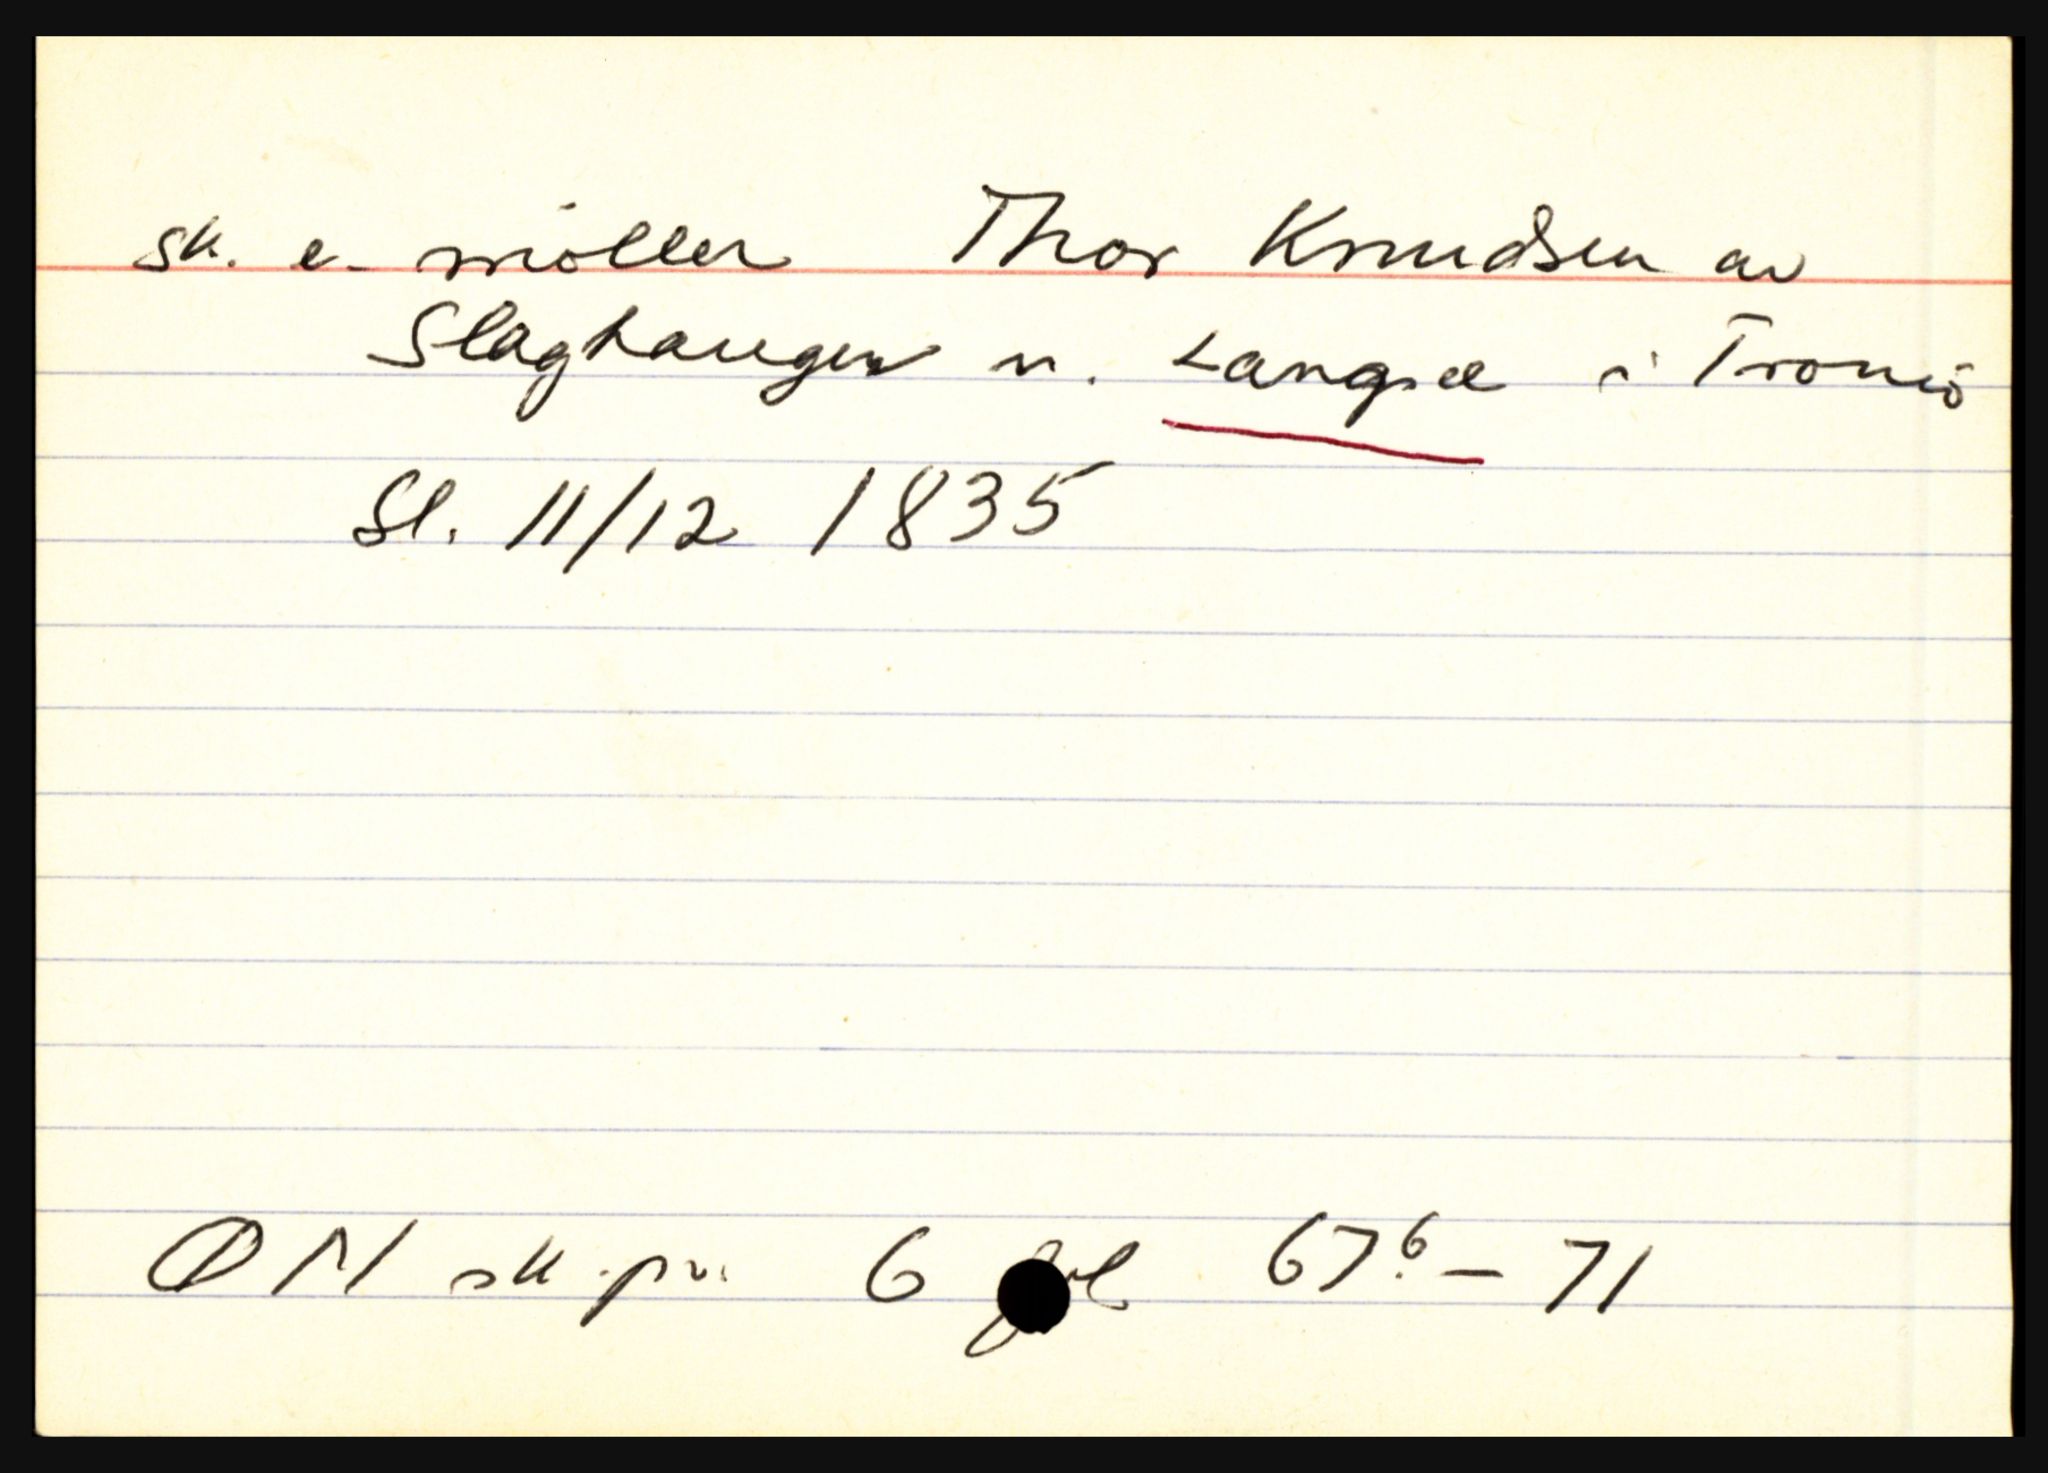 sk. e. möller Thor Knudsen av
Slaghaugen v. Langsæ i Tromö
Sl. 11/12 1835
ØN sk.pr. 6 fol 67.6 – 71